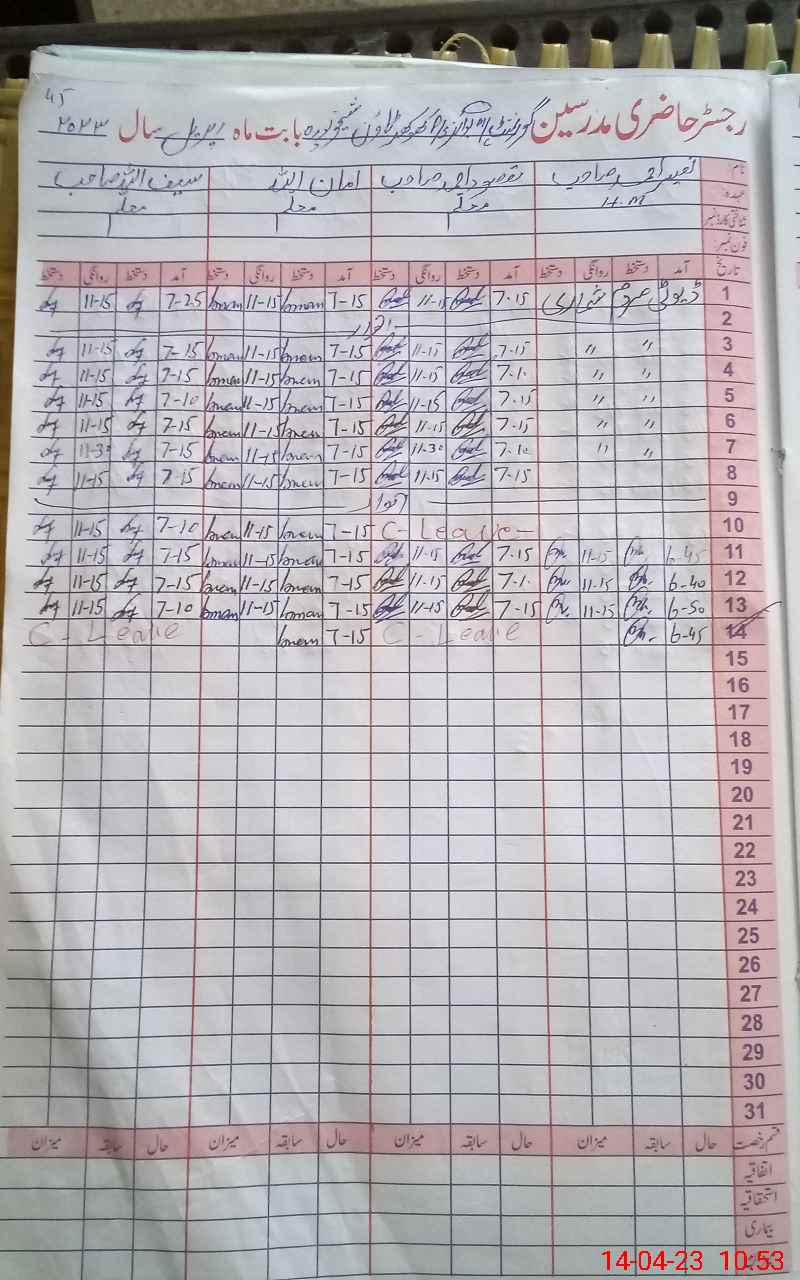 45
رجسٹر حاضری مدرسین گورنمنٹ شیخوپورہ بابت ماہ اپریل سال ۲۰۲۳
نام نصیر احمد صاحب مقصود احمد صاحب امان اللہ سیف اللہ صاحب
عہدہ: H.M معلم معلم معلم
شناختی کارڈ نمبر
فون نمبر:
تاریخ آمد دستخط روانگی دستخط آمد دستخط روانگی دستخط آمد دستخط روانگی دستخط آمد دستخط روانگی دستخط
1 ڈیوٹی مردم شماری 7-15 11-15 7-15 11-15 7-25 11-15
2 اتوار
3 〃 〃 7-15 11-15 7-15 11-15 7-15 11-15
4 〃 〃 7-10 11-15 7-15 11-15 7-15 11-15
5 〃 〃 7-15 11-15 7-15 11-15 7-10 11-15
6 〃 〃 7-15 11-15 7-15 11-15 7-15 11-15
7 〃 〃 7-10 11-30 7-15 11-15 7-15 11-30
8 7-15 11-15 7-15 11-15 7-15 11-15
9 اتوار
10 C-Leave- 7-15 11-15 7-10 11-15
11 6-45 11-15 7-15 11-15 7-15 11-15 7-15 11-15
12 6-40 11-15 7-10 11-15 7-15 11-15 7-15 11-15
13 6-50 11-15 7-15 11-15 7-15 11-15 7-10 11-15
14 6-45 C-Leave 7-15 C-Leave
15
16
17
18
19
20
21
22
23
24
25
26
27
28
29
30
31
قسم رخصت حال سابقہ میزان حال سابقہ میزان حال سابقہ میزان حال سابقہ میزان
اتفاقیہ
استحقاقیہ
بیماری
14-04-23 10:53